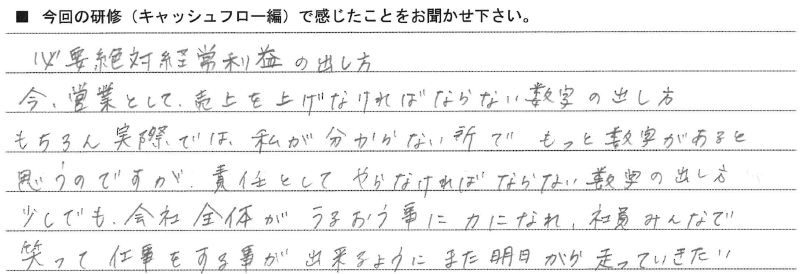 ■ 今回の研修（キャッシュフロー編）で感じたことをお聞かせ下さい。
必要絶対経常利益の出し方
今、営業として、売上を上げなければならない数字の出し方
もちろん実際では、私が分からない所で もっと数字があると
思うのですが、責任として やらなければならない数字の出し方
少しでも、会社全体が うるおう事に力になれ、社員みんなで
笑って仕事をする事が出来るように また明日から走っていきたい